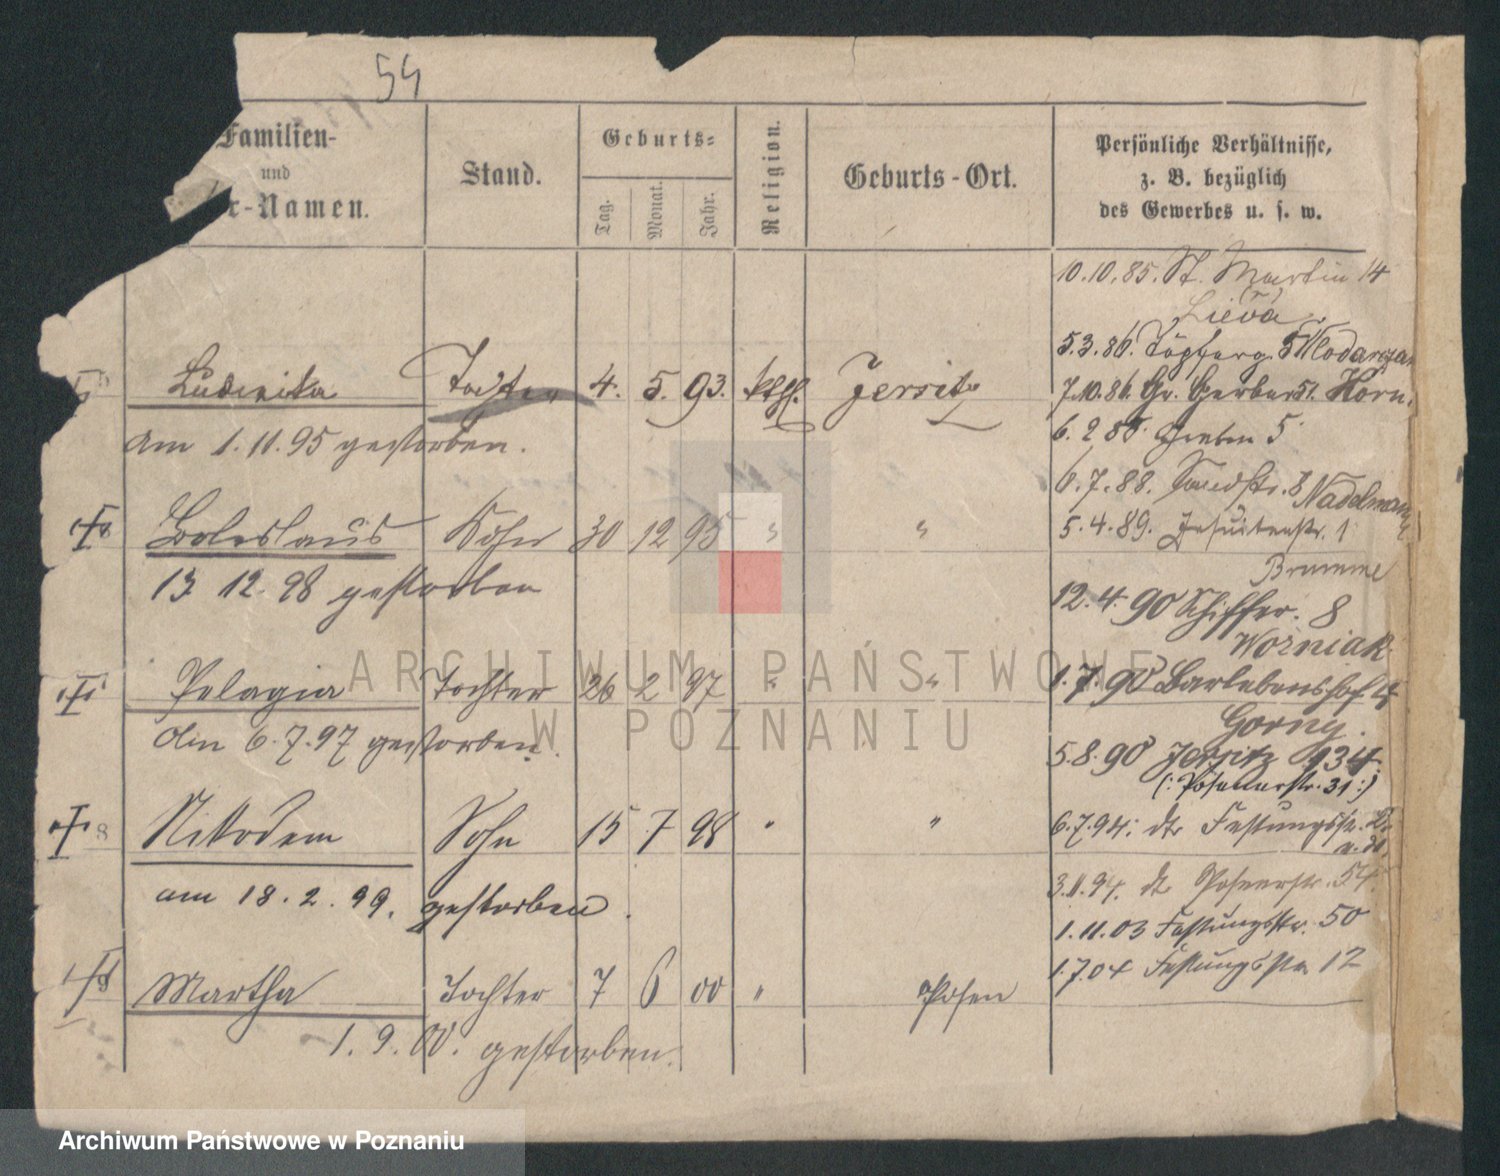 54
Familien-
und
r-Namen.
Stand.
Geburts-
Tag.
Monat.
Jahr.
Religion.
Geburts-Ort.
Persönliche Verhältnisse,
z. B. bezüglich
des Gewerbes u. s. w.
10.10.85. St. Martin 14
5.3.86. Wlodarczak
Ludwika Tochter 4. 5. 93. kth. Jersitz
7.10.86. Gr. Gerberst. Horn.
am 1.11.95 gestorben.
6.7.88. Sandstr. 8 Nadelmann
Boleslaus Sohn 30 12 95 " "
5.4.89. Jesuitenstr. 1
Brumme
13 12. 98 gestorben
12.4.90 Schifferstr. 8
Wozniak
Pelagia Tochter 26 2 97 " "
1.7.90 Barlebenshof 4
Gorny.
den 6.7.97 gestorben.
5.8.90 Jersitz 134
(: Posenerstr. 31 :)
Nikodem Sohn 15 7 98 " "
6.7.94. dto Festungsstr.
am 18.2.99. gestorben.
3.11.94. dto Posenerstr. 54.
1.11.03 Festungsstr. 50
1.7.04 Festungsstr 12
Martha Tochter 7 6 00 " Posen
1.9.00. gestorben.
ARCHIWUM PAŃSTWOWE
W POZNANIU
Archiwum Państwowe w Poznaniu